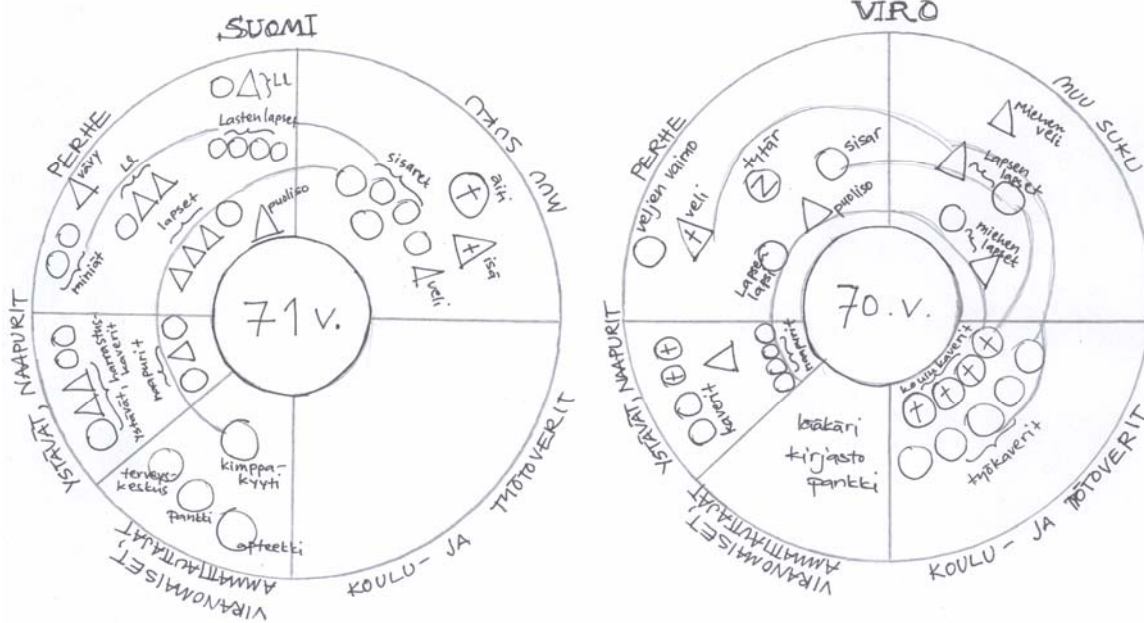 SUOMI
PERHE
MUU SUKU
TYÖTOVERIT
KOULU- JA
VIRANOMAISET,
AMMATTIAUTTAJAT
YSTÄVÄT, NAAPURIT
LL
Lastenlapset
vävy
LL
lapset
miniät
puoliso
sisaret
äiti
isä
veli
71 v.
Ystävät, harrastus-
kaverit
naapurit
kimppa-
kyyti
terveys-
keskus
pankki
apteekki
VIRO
PERHE
MUU SUKU
KOULU- JA TYÖTOVERIT
VIRANOMAISET,
AMMATTIAUTTAJAT
YSTÄVÄT, NAAPURIT
veljen vaimo
veli
tytär
sisar
puoliso
Lapsen
lapsi
Miehen
veli
Lapsen
lapset
miehen
lapset
70. v.
kaverit
naapurit
koulukaverit
työkaverit
lääkäri
kirjasto
pankki